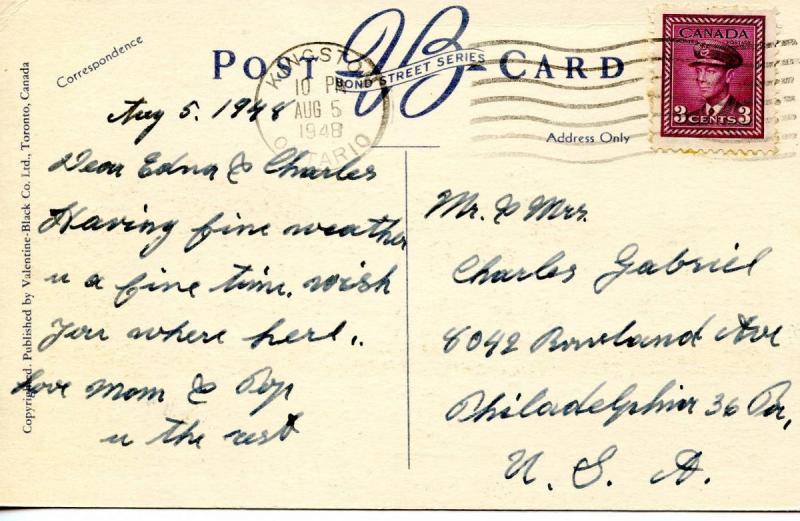 Correspondence
POST CARD
VB
BOND STREET SERIES
KINGSTON
10 PM
AUG 5
1948
ONTARIO
CANADA
3 CENTS 3
Address Only
Copyrighted. Published by Valentine-Black Co. Ltd., Toronto, Canada
Aug 5. 1948
Dear Edna & Charles
Having fine weather
u a fine time. wish
you where here..
Love Mom & Pop
u the rest
Mr. & Mrs.
Charles Gabriel
6042 Rowland Ave
Philadelphia 36 Pa,
U. S. A.